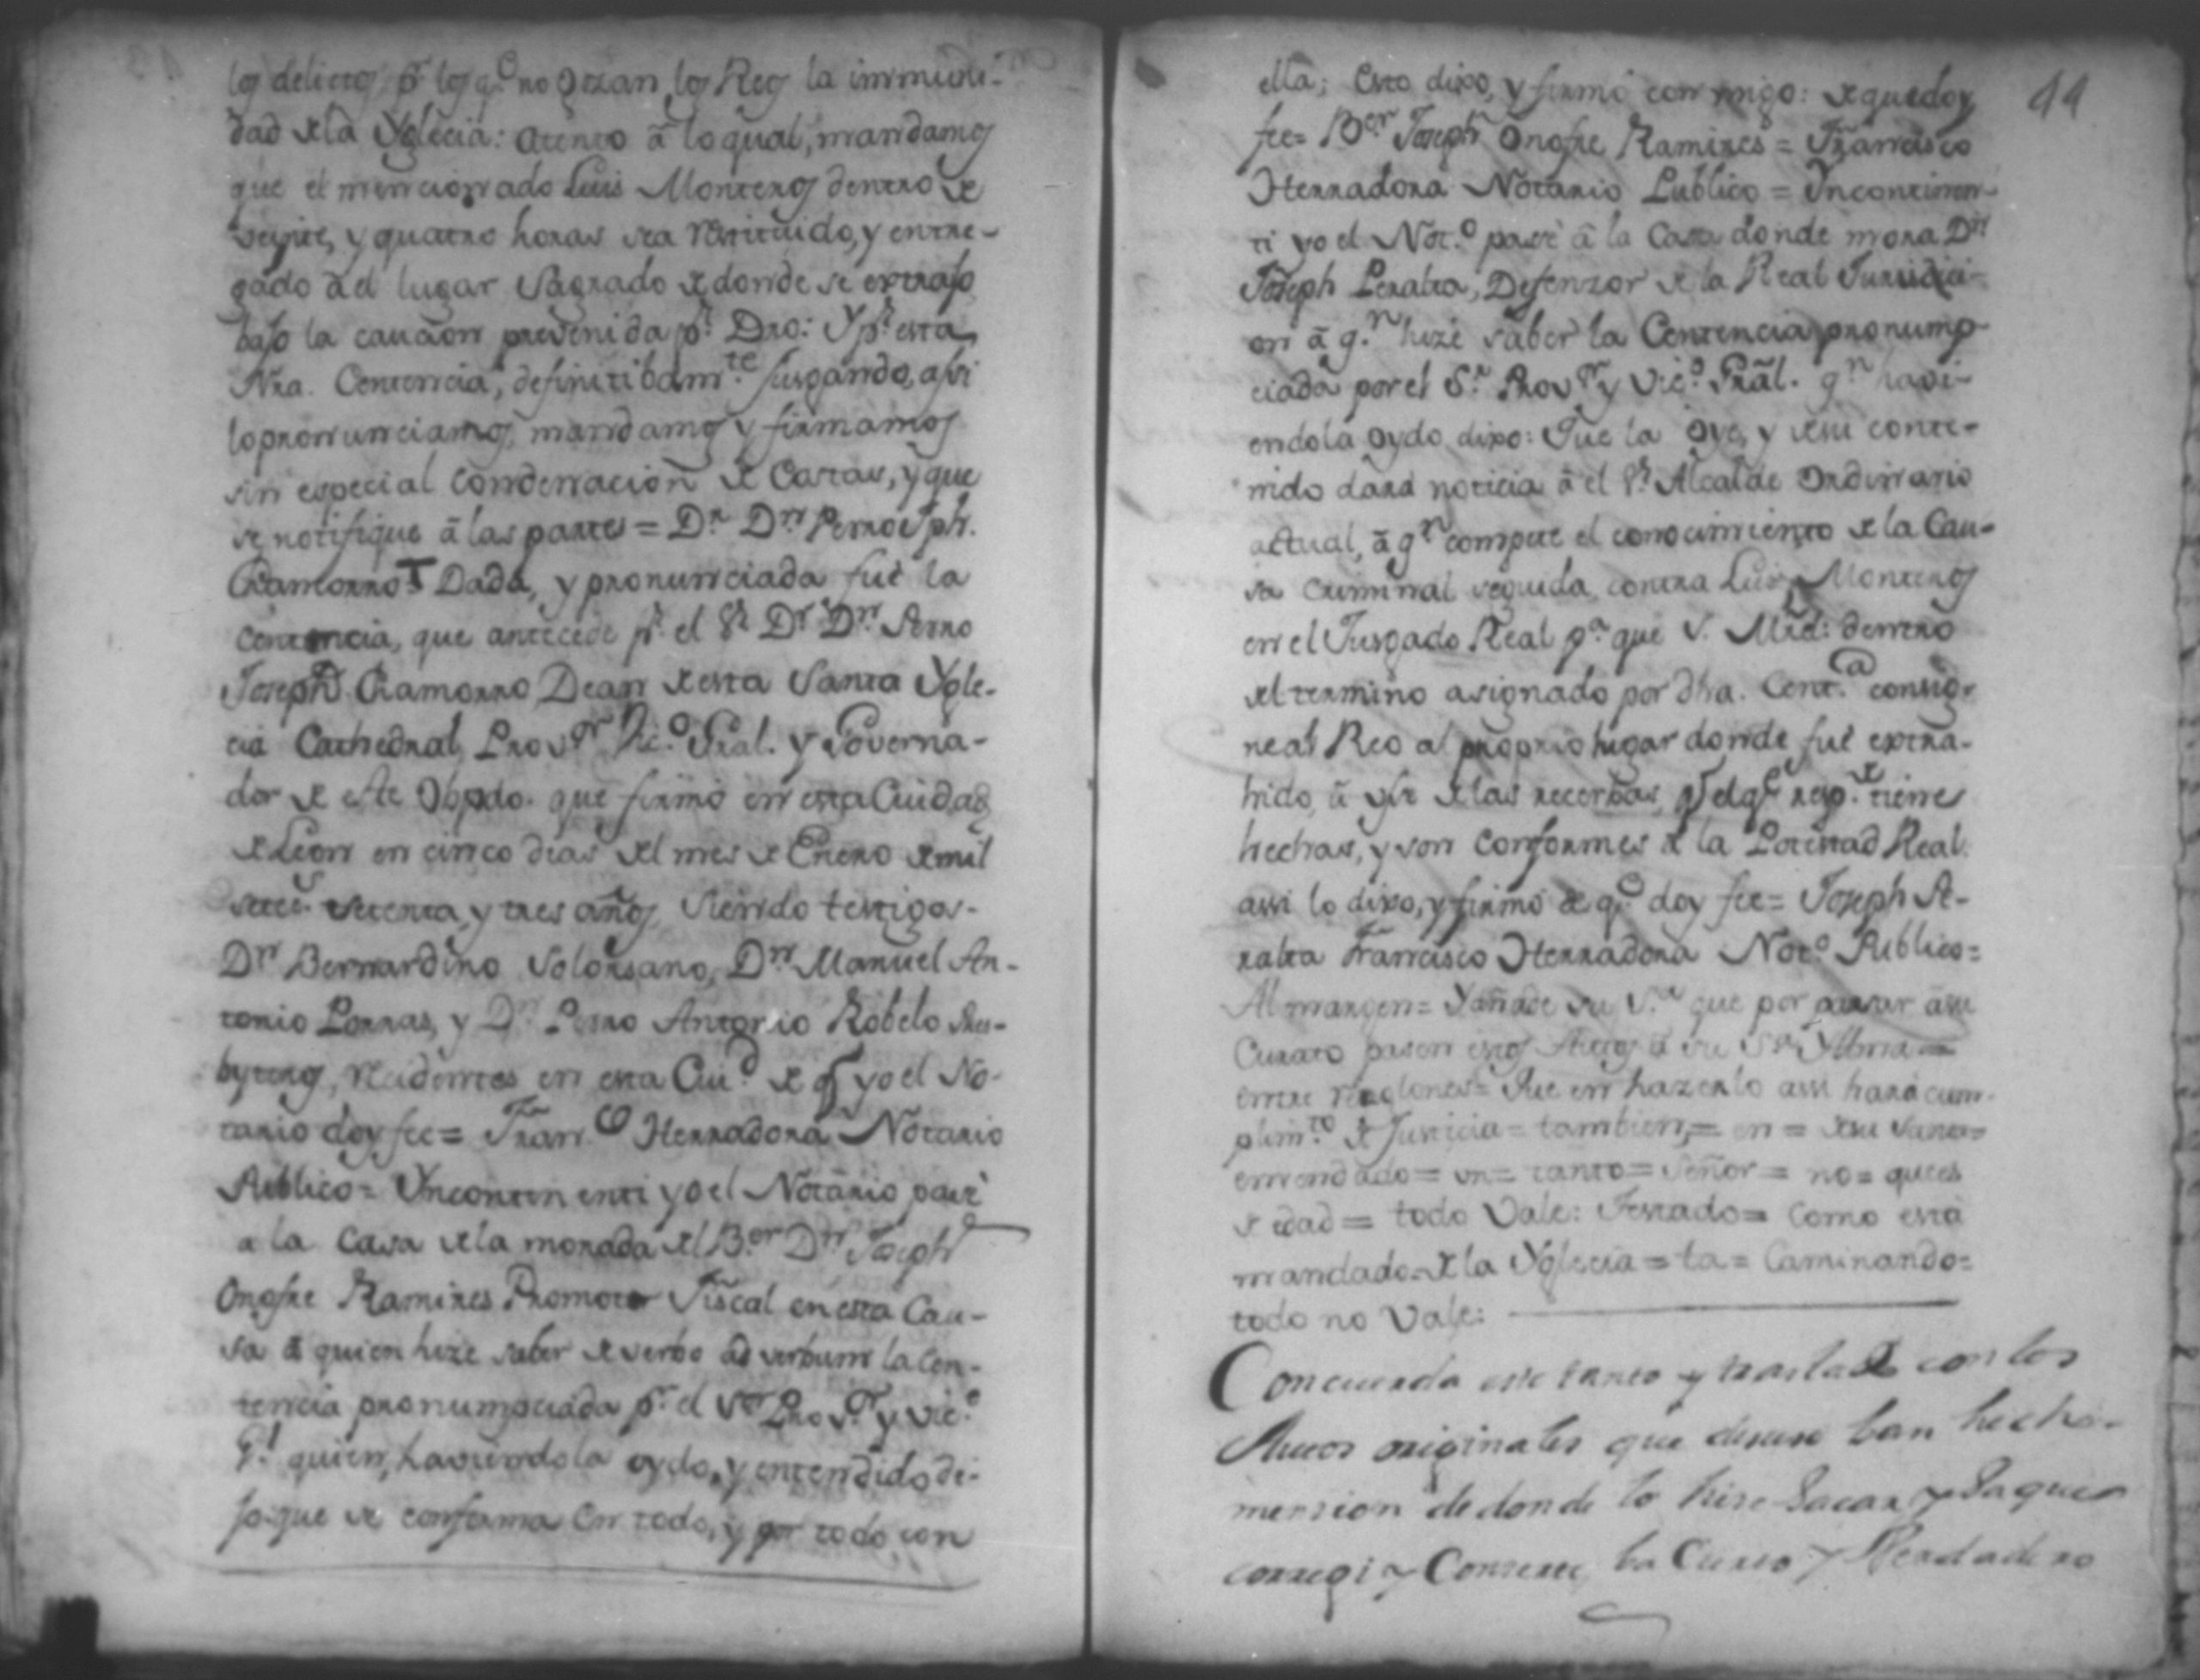 los delictos pr. los qe. no gozan los Reos la immuni-
dad de la Yglecia: atento â lo qual, mandamos
que el mencionado Luis Monteros dentro de
veynte, y quatro horas sea restituido, y entre-
gado â el lugar Sagrado de donde se extrajo
bajo la caucion prevenida pr. Dro: Y pr. esta
Nra. Centencia, definitibamte. jusgando, assi
lo pronunciamos, mandamos y firmamos
sin especial condenacion de Costas, y que
se notifique â las partes = Dr. Dn. Pedro Jph.
Chamorro = Dada, y pronunciada fue la
Centencia, que antecede pr. el Sr. Dr. Dn. Pedro
Joseph Chamorro Dean de esta Santa Ygle-
cia Cathedral, Provor. Vico. Gral. y Governa-
dor de este Obpdo. que firmó en esta Cuidad
de Leon en cinco dias del mes de Enero de mil
setes. setenta, y tres años, siendo testigos-
Dn. Bernardino Solorsano, Dn. Manuel An-
tonio Porras, y Dn. Pedro Antonio Robelo Pres-
byteros, recidentes en esta Cuid. de q yo el No-
tario doy fee = Franco. Herradora Notario
Publico = Yncontinenti yo el Notario pasé
a la Casa de la morada del Ber. Dn. Joseph
Onofre Ramires Promotor Fiscal en esta Cau-
sa â quien hize saber de verbo ad verbum la Cen-
tencia pronumpciada pr. el Sor. Provor. y Vico.
Gl. quien, haviendola oydo, y entendido di-
jo que se conforma en todo, y por todo con
44
ella; Esto dixo, y firmó conmigo: de que doy
fee = Ber. Joseph Onofre Ramires = Francisco
Herradora Notario Publico = Yncontinen-
ti yo el Noto. pasé â la Casa donde mora Dn.
Joseph Peralta, Defenzor de la Real Jurisdici-
on â qn. hize saber la Centencia pronump-
ciada por el Sr. Provor. y Vico. Gral. qn. havi-
endola oydo dixo: Que la oye, y de su conte-
nido dará noticia â el Sr. Alcalde Ordinario
actual, â qn. compete el conocimiento de la Cau-
sa criminal seguida contra Luis Monteros
en el Jusgado Real pa. que S. Mrd: dentro
del termino asignado por dha. Centa. consig-
ne al Reo al proprio lugar donde fué extra-
hido, â de las recerbas, q tiene
hechas, y son conformes â la Potestad Real.
assi lo dixo, y firmó de qe. doy fee = Joseph Pe-
ralta Francisco Herradora Noto. Publico =
Al margen = Yañade su Sa. que por pasar â su
Curato pasen estos Autos â su Sa. Yllma =
entre renglones = Que en hazerlo assi hará cum-
plimto. de Justicia = tambien, = en = de su Santa =
enmendado = un = tanto = Señor = no = ques
de edad = todo Vale: Testado = Como está
mandado = de la Yglecia = ta = Caminando =
todo no Vale:
Concuerda este tanto y traslado con los
Autos originales que desuso ban hecha
mension de donde lo hise Sacar y Saque
corregi y Conserte ba Cierto y Verdadero